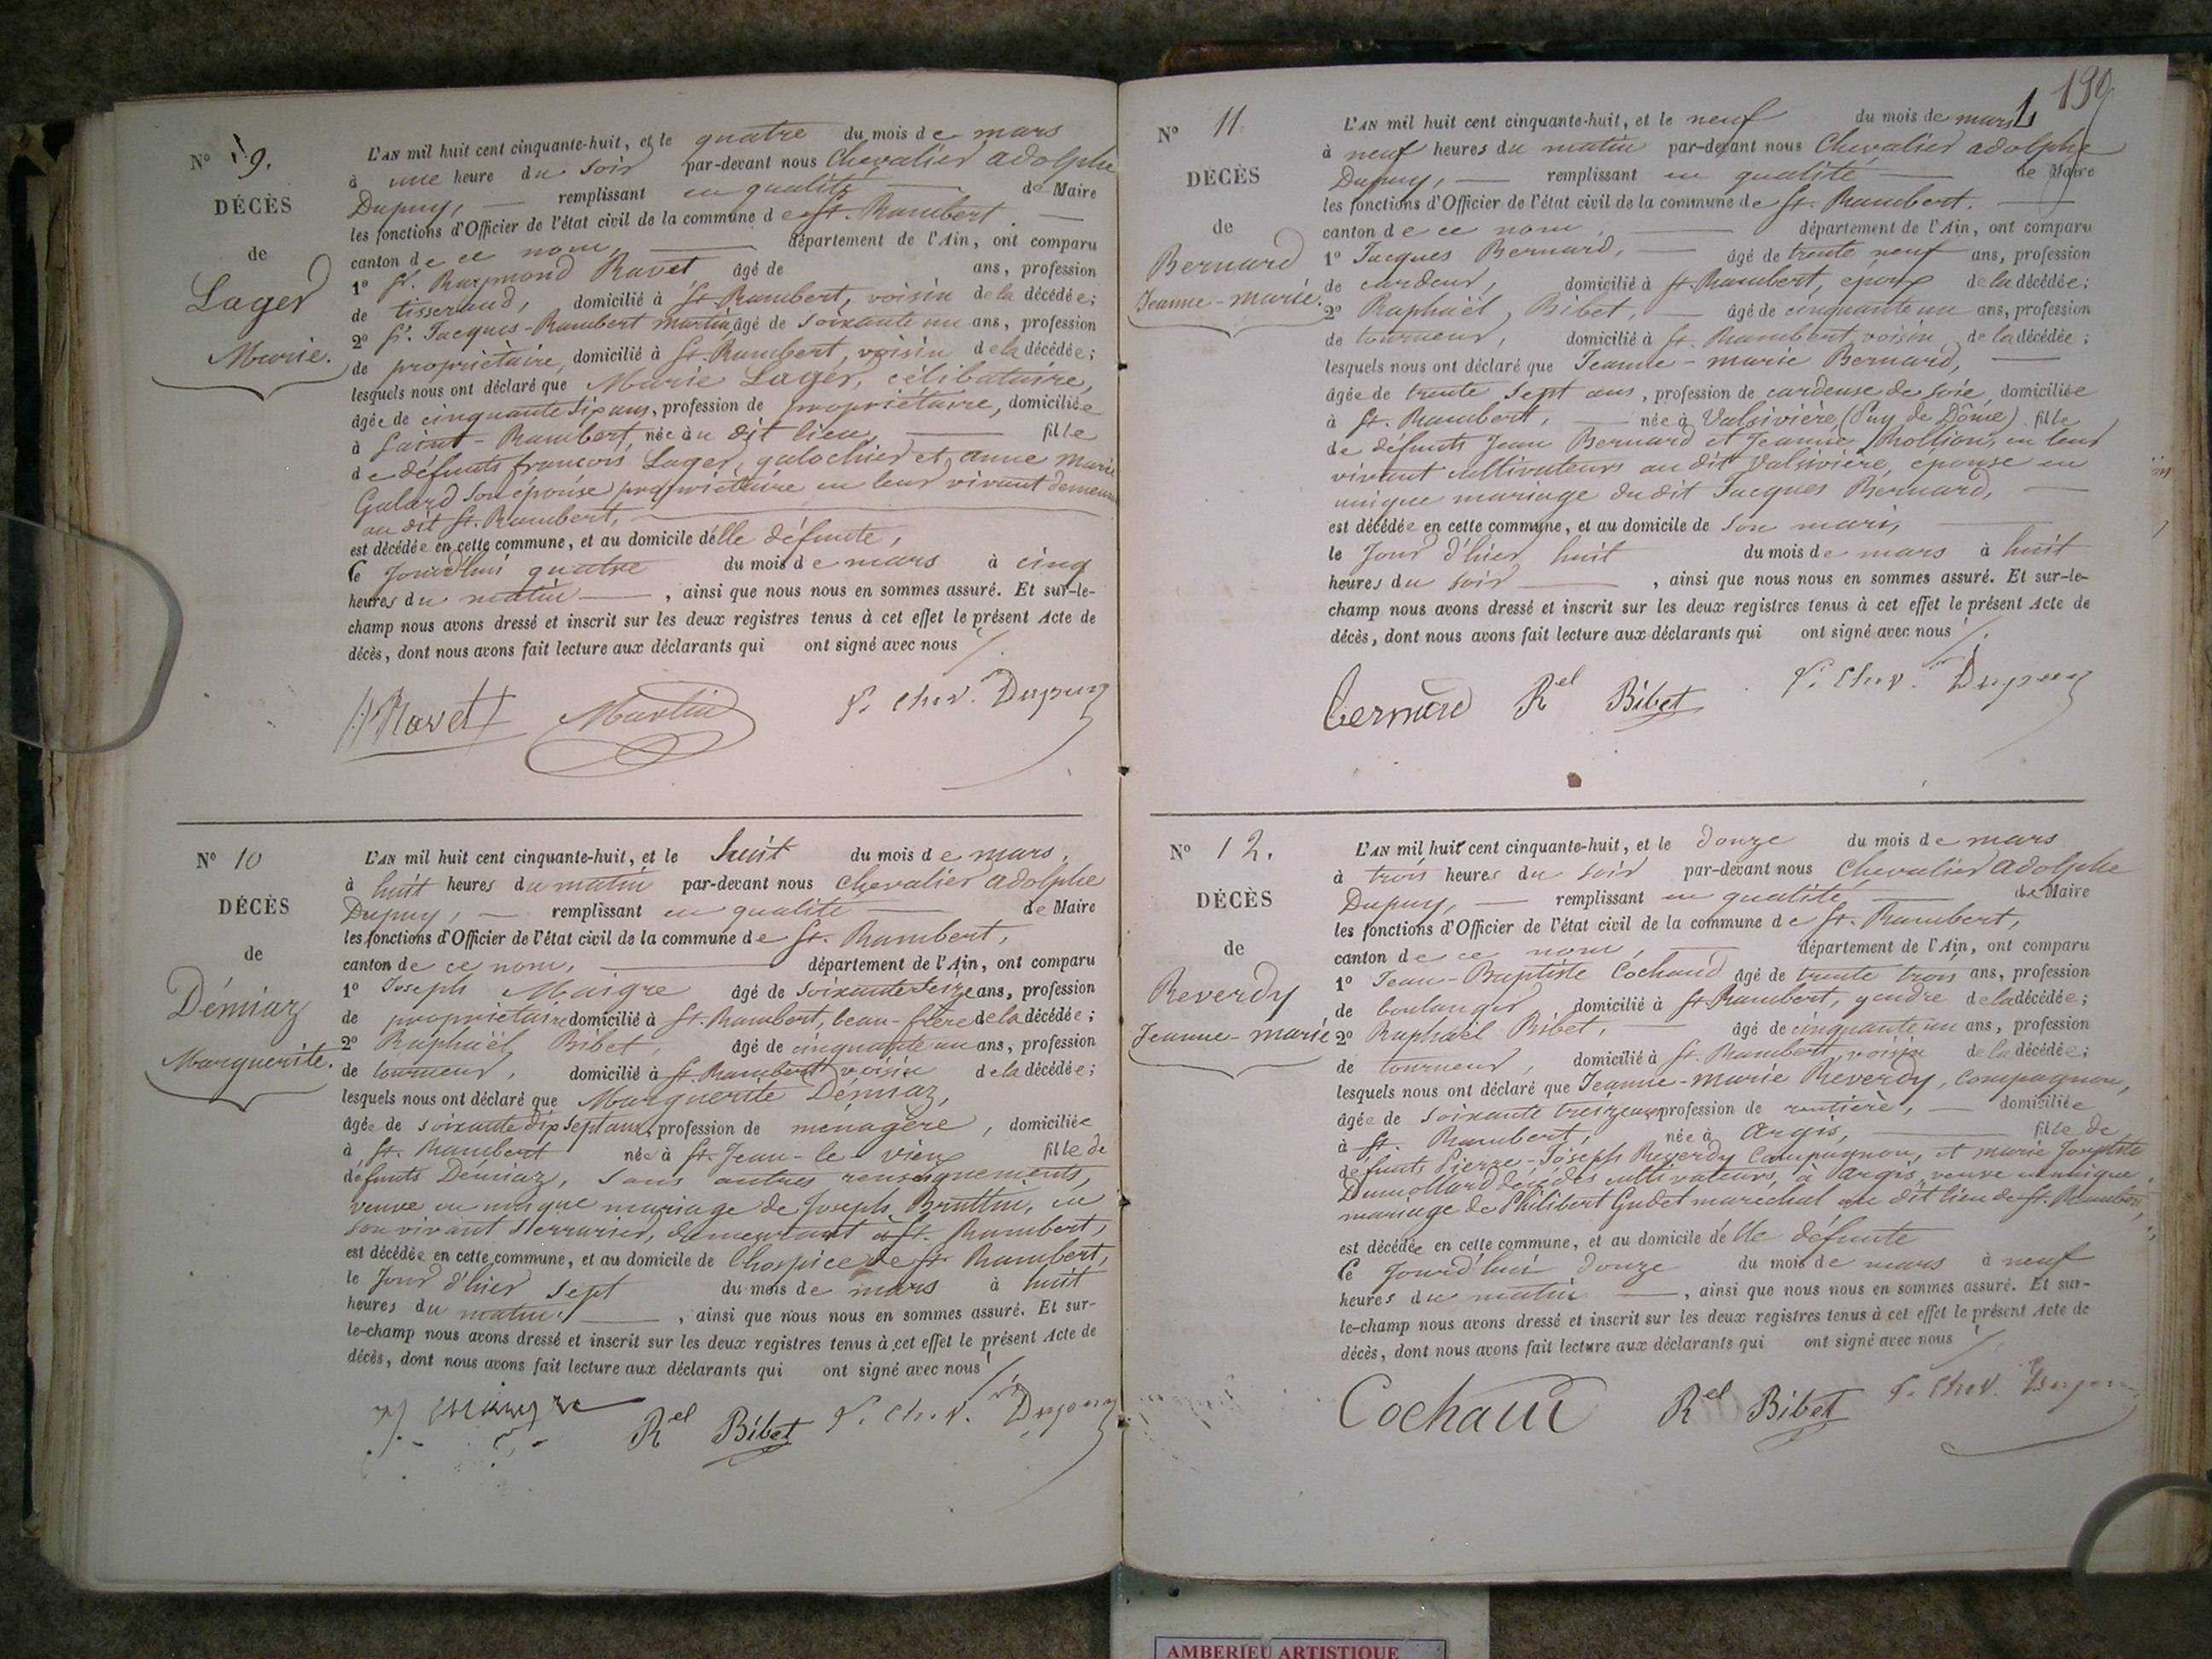 N° 9.
DÉCÈS
de
Lager
Marie.
L'AN mil huit cent cinquante-huit, et le quatre du mois de mars
à une heure du soir par-devant nous Chevalier Adolphe
Dupuy, — remplissant en qualité — de Maire
les fonctions d'Officier de l'état civil de la commune de St. Rambert. —
canton de ce nom, — département de l'Ain, ont comparu
1° Sr. Raymond Ravet âgé de ans, profession
de tisserand, domicilié à St. Rambert, voisin de la décédée;
2° Sr. Jacques-Rambert Martin, âgé de soixante un ans, profession
de propriétaire, domicilié à St. Rambert, voisin de la décédée;
lesquels nous ont déclaré que Marie Lager, célibataire,
âgée de cinquante six ans, profession de propriétaire, domiciliée
à Saint-Rambert, née au dit lieu — fille
de défunts françois Lager, galochier et anne Marie
Galard son épouse propriétaire en leur vivant
au dit St. Rambert, —
est décédée en cette commune, et au domicile d'elle défunte,
ce jourd'hui quatre du mois de mars à cinq
heures du matin —, ainsi que nous nous en sommes assuré. Et sur-le-
champ nous avons dressé et inscrit sur les deux registres tenus à cet effet le présent Acte de
décès, dont nous avons fait lecture aux déclarants qui ont signé avec nous /.
Ravet Martin Chev. Dupuy
N° 10
DÉCÈS
de
Démiaz
Marguerite.
L'AN mil huit cent cinquante-huit, et le huit du mois de mars,
à huit heures du matin par-devant nous Chevalier Adolphe
Dupuy, — remplissant en qualité — de Maire
les fonctions d'Officier de l'état civil de la commune de St. Rambert,
canton de ce nom, — département de l'Ain, ont comparu
1° Joseph Maigre âgé de soixante seize ans, profession
de propriétaire domicilié à St. Rambert, beau-frère de la décédée;
2° Raphaël Bibet, âgé de cinquante un ans, profession
de tourneur, domicilié à St. Rambert voisin de la décédée;
lesquels nous ont déclaré que Marguerite Démiaz,
âgée de soixante dix sept ans, profession de ménagère, domiciliée
à St. Rambert née à St. Jean-le-vieux fille de
défunts Démiaz, sans autres renseignements,
veuve en unique mariage de Joseph en
son vivant serrurier, demeurant à St. Rambert,
est décédée en cette commune, et au domicile de l'hospice de St. Rambert,
le jour d'hier sept du mois de mars à huit
heures du matin, —, ainsi que nous nous en sommes assuré. Et sur-
le-champ nous avons dressé et inscrit sur les deux registres tenus à cet effet le présent Acte de
décès, dont nous avons fait lecture aux déclarants qui ont signé avec nous /.
Rel Bibet Chev. Dupuy
190
N° 11
DÉCÈS
de
Bernard
Jeanne-marie.
L'AN mil huit cent cinquante-huit, et le neuf du mois de mars
à neuf heures du matin par-devant nous Chevalier adolphe
Dupuy, — remplissant en qualité — de Maire
les fonctions d'Officier de l'état civil de la commune de St. Rambert, —
canton de ce nom, — département de l'Ain, ont comparu
1° Jacques Bernard, — âgé de trente neuf ans, profession
de cardeur, domicilié à St. Rambert, époux de la décédée;
2° Raphaël Bibet, — âgé de cinquante un ans, profession
de tourneur, domicilié à St. Rambert voisin de la décédée;
lesquels nous ont déclaré que Jeanne-marie Bernard, —
âgée de trente sept ans, profession de cardeuse de soie, domiciliée
à St. Rambert, — née à Valsivière (Puy de Dôme) fille
de défunts Jean Bernard et Jeanne Rollion, en leur
vivant cultivateurs au dit Valsivière, épouse en
unique mariage du dit Jacques Bernard, —
est décédée en cette commune, et au domicile de son mari, —
le jour d'hier huit du mois de mars à huit
heures du soir —, ainsi que nous nous en sommes assuré. Et sur-le-
champ nous avons dressé et inscrit sur les deux registres tenus à cet effet le présent Acte de
décès, dont nous avons fait lecture aux déclarants qui ont signé avec nous /.
Bernard Rel Bibet Chev. Dupuy
N° 12.
DÉCÈS
de
Reverdy
Jeanne-marie
L'AN mil huit cent cinquante-huit, et le douze du mois de mars
à trois heures du soir par-devant nous Chevalier Adolphe
Dupuy, — remplissant en qualité — de Maire
les fonctions d'Officier de l'état civil de la commune de St. Rambert,
canton de ce nom, — département de l'Ain, ont comparu
1° Jean-Baptiste Cochaud âgé de trente trois ans, profession
de boulanger domicilié à St. Rambert, gendre de la décédée;
2° Raphaël Bibet, — âgé de cinquante un ans, profession
de tourneur, domicilié à St. Rambert, voisin de la décédée;
lesquels nous ont déclaré que Jeanne-marie Reverdy, Compagnon,
âgée de soixante treize ans, profession de rentière, — domiciliée
à St. Rambert, née à Argis, — fille de
défunts Pierre-Joseph Reverdy Compagnon, et marie Josephte
Dumollard décédés cultivateurs, à Argis, veuve en unique
mariage de Philibert Gudet maréchal au dit lieu de St. Rambert,
est décédée en cette commune, et au domicile d'elle défunte
ce jourd'hui douze du mois de mars à neuf
heures du matin —, ainsi que nous nous en sommes assuré. Et sur-
le-champ nous avons dressé et inscrit sur les deux registres tenus à cet effet le présent Acte de
décès, dont nous avons fait lecture aux déclarants qui ont signé avec nous /.
Cochaud Rel Bibet Chev. Dupuy
AMBERIEU ARTISTIQUE